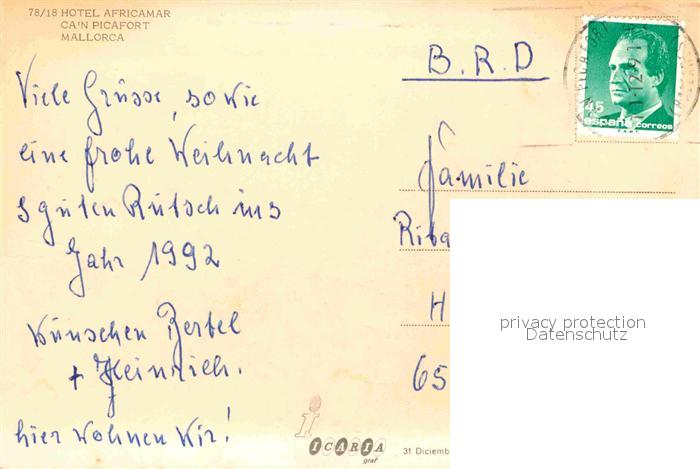 78/18 HOTEL AFRICAMAR
CA'N PICAFORT
MALLORCA
Viele Grüsse, sowie
eine frohe Weihnacht
s guten Rutsch ins
Jahr 1992
wünschen Bertel
+ Heinrich.
hier wohnen wir!
B.R.D
45
españa correos
Familie
Riba
H
65
privacy protection
Datenschutz
i
ICARIA
graf
31 Diciemb